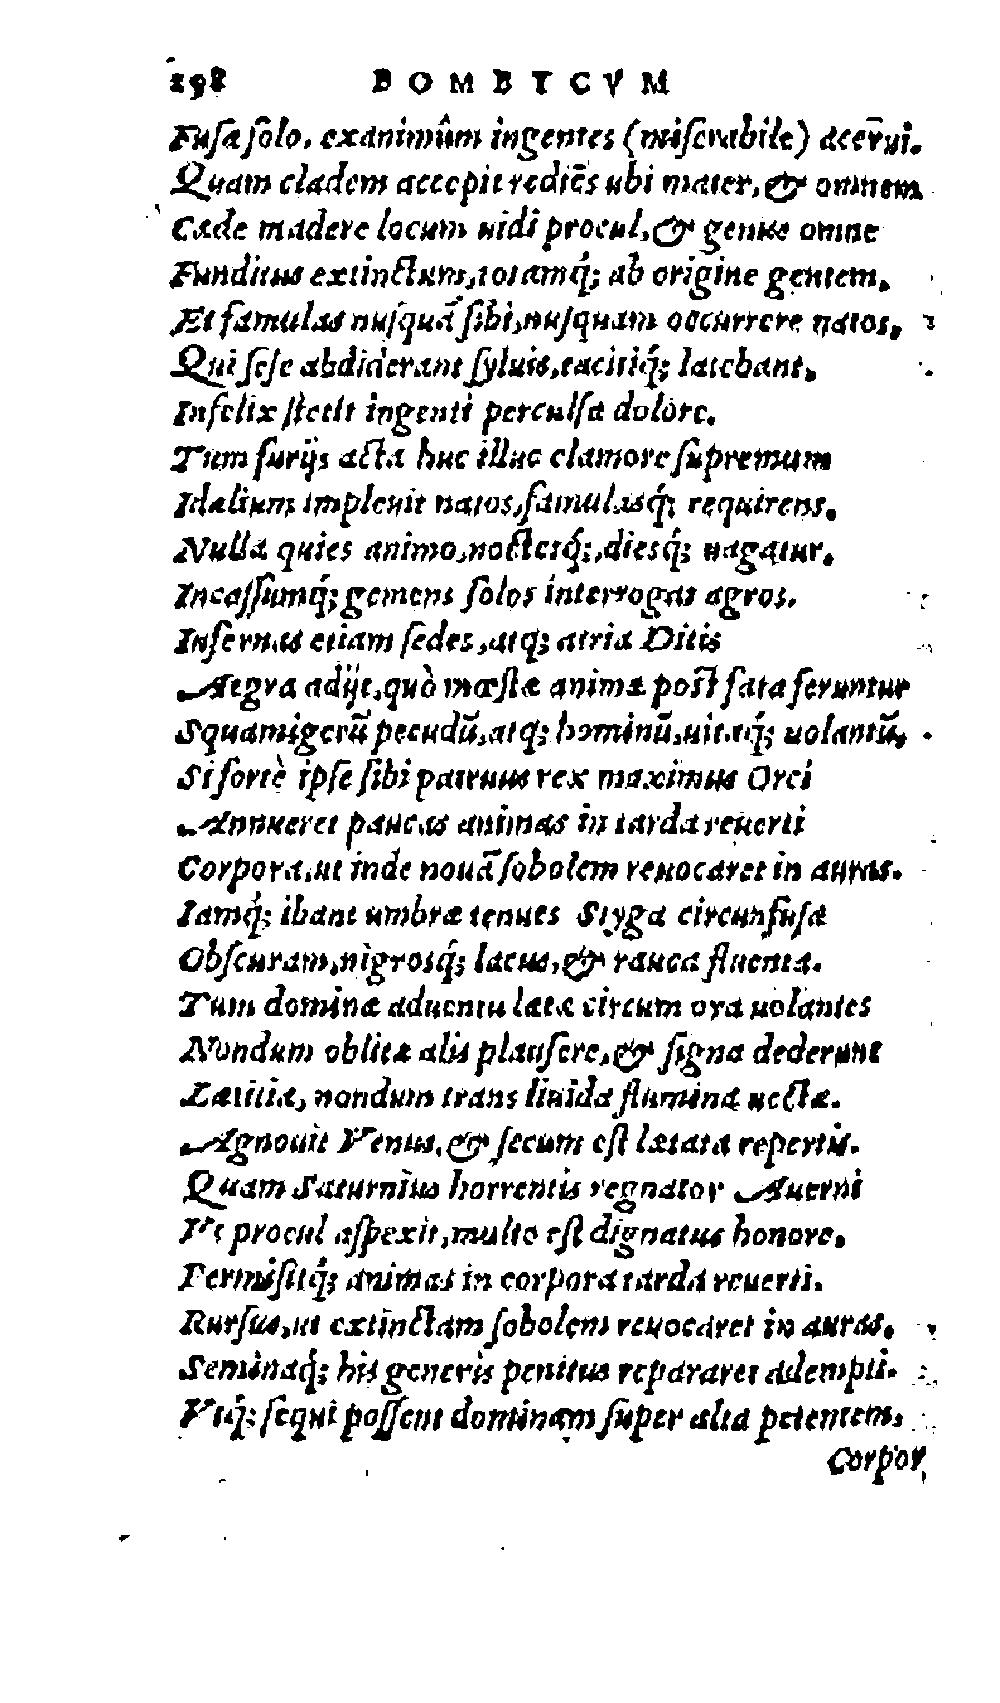 198 BOMBYCVM
Fusa solo, exanimûm ingentes (miserabile) acerui.
Quam cladem accepit rediẽs ubi mater, & omnem
Cæde madere locum uidi procul, & genus omne
Funditus extinctum, totamq́; ab origine gentem,
Et famulas nusquã sibi, nusquam occurrere natos,
Qui sese abdiderant syluis, tacitiq́; latebant,
Infelix stetit ingenti perculsa dolore.
Tum furijs acta huc illuc clamore supremum
Idalium impleuit natos, famulasq́; requirens.
Nulla quies animo, noctesq́;, diesq́; uagatur.
Incassumq́; gemens solos interrogat agros.
Infernas etiam sedes, atq; atria Ditis
Aegra adijt, quò mœstæ animæ post fata feruntur
Squamigerũ pecudũ, atq; hominũ, uitæq́; uolantũ,
Si fortè ipse sibi patruus rex maximus Orci
Annueret paucas animas in tarda reuerti
Corpora, ut inde nouã sobolem reuocaret in auras.
Iamq́; ibant umbræ tenues Styga circunfusa
Obscuram, nigrosq́; lacus, & rauca fluenta.
Tum dominæ aduentu lætæ circum ora uolantes
Nondum oblitæ alis plausere, & signa dederunt
Lætitiæ, nondum trans liuida flumina uectæ.
Agnouit Venus, & secum est lætata repertis.
Quam Saturnius horrentis regnator Auerni
Vt procul aspexit, multo est dignatus honore,
Permisitq́; animas in corpora tarda reuerti.
Rursus, ut extinctam sobolem reuocaret in auras,
Seminaq́; his generis penitus repararet adempti.
Vtq́; sequi possent dominam super alta petentem,
Corpor